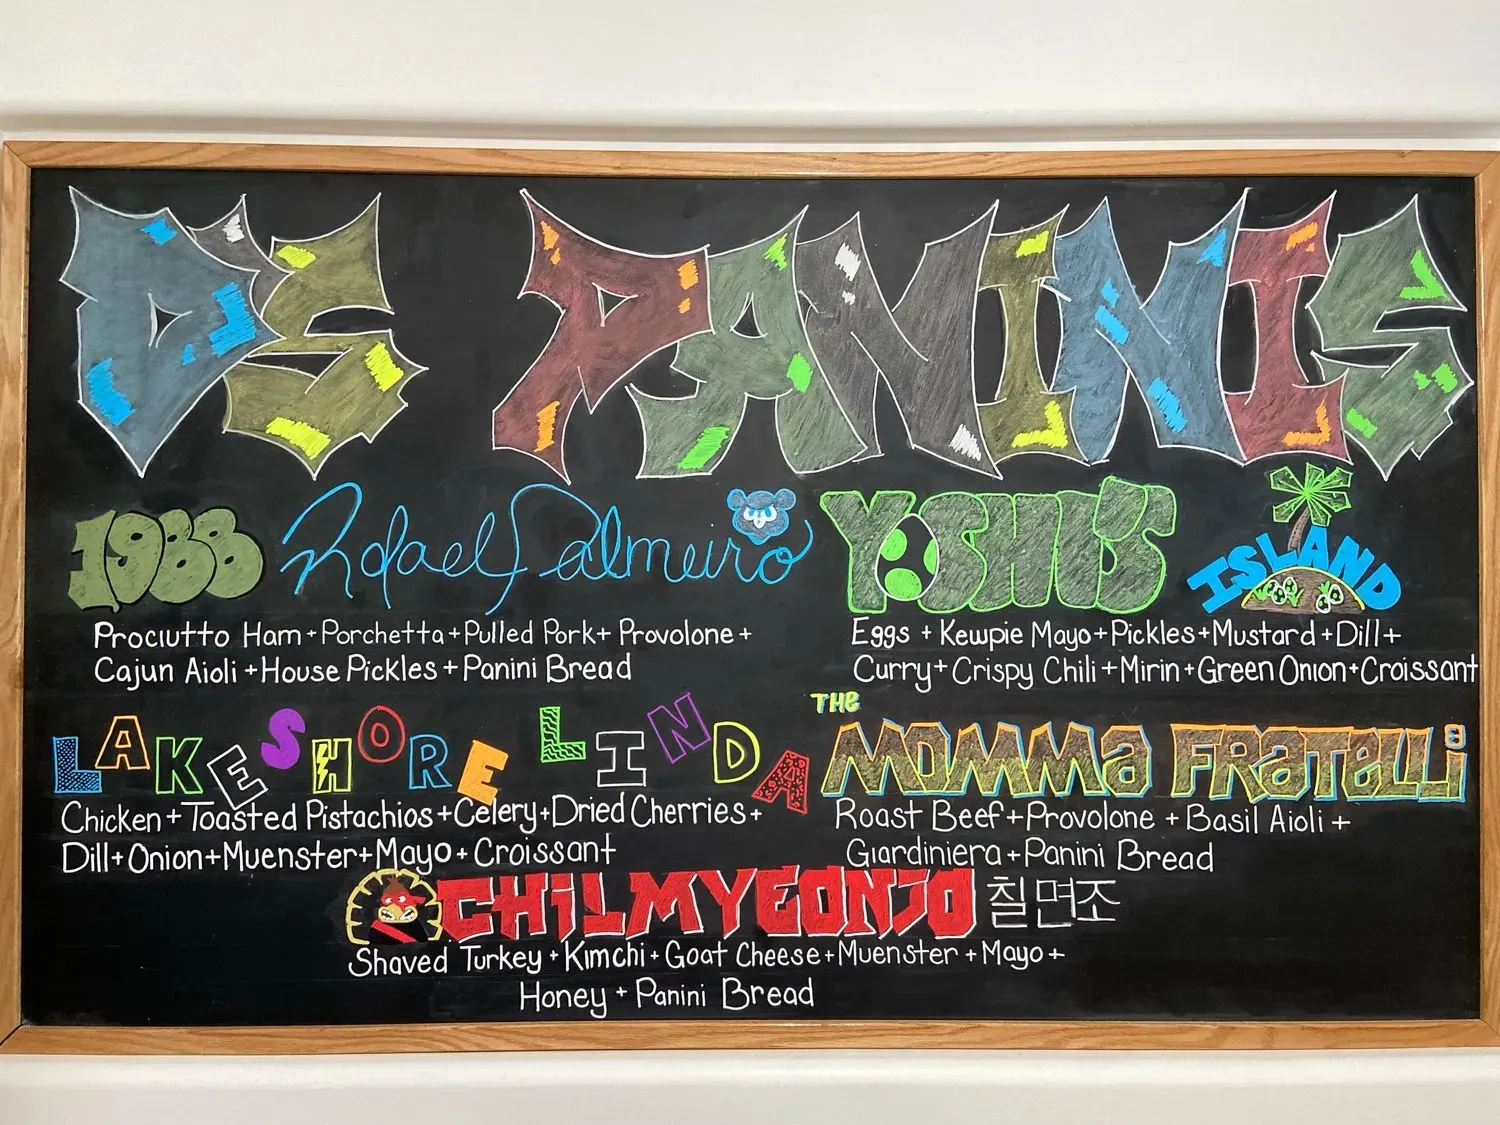 D'S PANINIS
1988 Rafael Palmeiro
Prociutto Ham + Porchetta + Pulled Pork + Provolone +
Cajun Aioli + House Pickles + Panini Bread
YOSHI'S ISLAND
Eggs + Kewpie Mayo + Pickles + Mustard + Dill +
Curry + Crispy Chili + Mirin + Green Onion + Croissant
LAKESHORE LINDA
Chicken + Toasted Pistachios + Celery + Dried Cherries +
Dill + Onion + Muenster + Mayo + Croissant
THE
MOMMA FRATELLi
Roast Beef + Provolone + Basil Aioli +
Giardiniera + Panini Bread
CHiLMYEONJO 칠면조
Shaved Turkey + Kimchi + Goat Cheese + Muenster + Mayo +
Honey + Panini Bread